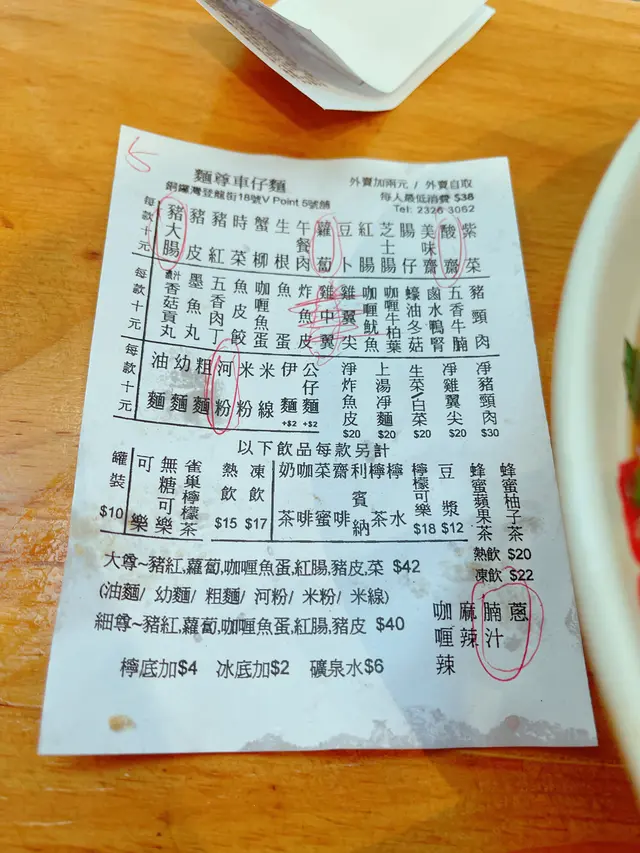 5
麵尊車仔麵
外賣加兩元 / 外賣自取
銅鑼灣登龍街18號V Point 5號舖
每人最低消費 $38
Tel: 2326 3062
每款十元
豬大腸
豬皮
豬紅
時菜
蟹柳
生根
午餐肉
蘿蔔
豆卜
紅腸
芝士腸
腸仔
美味齋
酸齋
紫菜
每款十元
香菇貢丸
墨丸
五香肉丁
魚皮餃
咖喱魚蛋
魚蛋
炸魚皮
雞中翼
雞翼尖
咖喱魷魚
咖喱牛柏葉
蠔油冬菇
鹵水鴨腎
五香牛腩
豬頸肉
每款十元
油麵
幼麵
粗麵
河粉
米粉
米線
伊麵 +$2
公仔麵 +$2
淨炸魚皮 $20
上湯淨麵 $20
生菜\白菜 $20
淨雞翼尖 $20
淨豬頸肉 $30
以下飲品每款另計
罐裝 $10
可樂
無糖可樂
雀巢檸檬茶
熱飲 $15
凍飲 $17
奶茶
咖啡
菜蜜
齋啡
利賓納
檸茶
檸水
檸檬可樂 $18
豆漿 $12
蜂蜜蘋果茶
蜂蜜柚子茶
熱飲 $20
凍飲 $22
大尊~豬紅,蘿蔔,咖喱魚蛋,紅腸,豬皮,菜 $42
(油麵/ 幼麵/ 粗麵/ 河粉/ 米粉/ 米線)
細尊~豬紅,蘿蔔,咖喱魚蛋,紅腸,豬皮 $40
咖喱辣
麻辣
腩汁
蔥
檸底加$4 冰底加$2 礦泉水$6